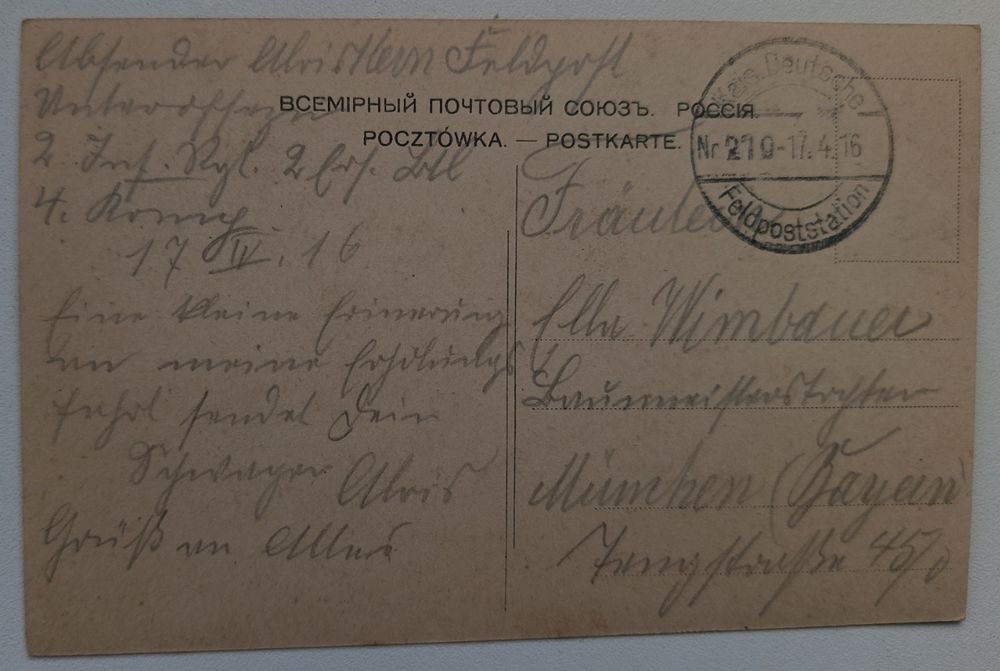 Absender Alois Kern Feldpost
Unteroffizier
ВСЕМІРНЫЙ ПОЧТОВЫЙ СОЮЗЪ. РОССІЯ.
POCZTÓWKA. — POSTKARTE.
2. Inf. Rgt. 2 Ers. Btl
4. Komp
17 IV. 16
Eine kleine Erinerung
an meine Erholungs
fahrt sendet Dein
Schwager Alois
Gruß an Alles
Kais. Deutsche
Nr 219 -17.4.16
Feldpoststation
Fräulein
Ella Wimbauer
Baumeisterstochter
München (Bayern)
straße 45/0